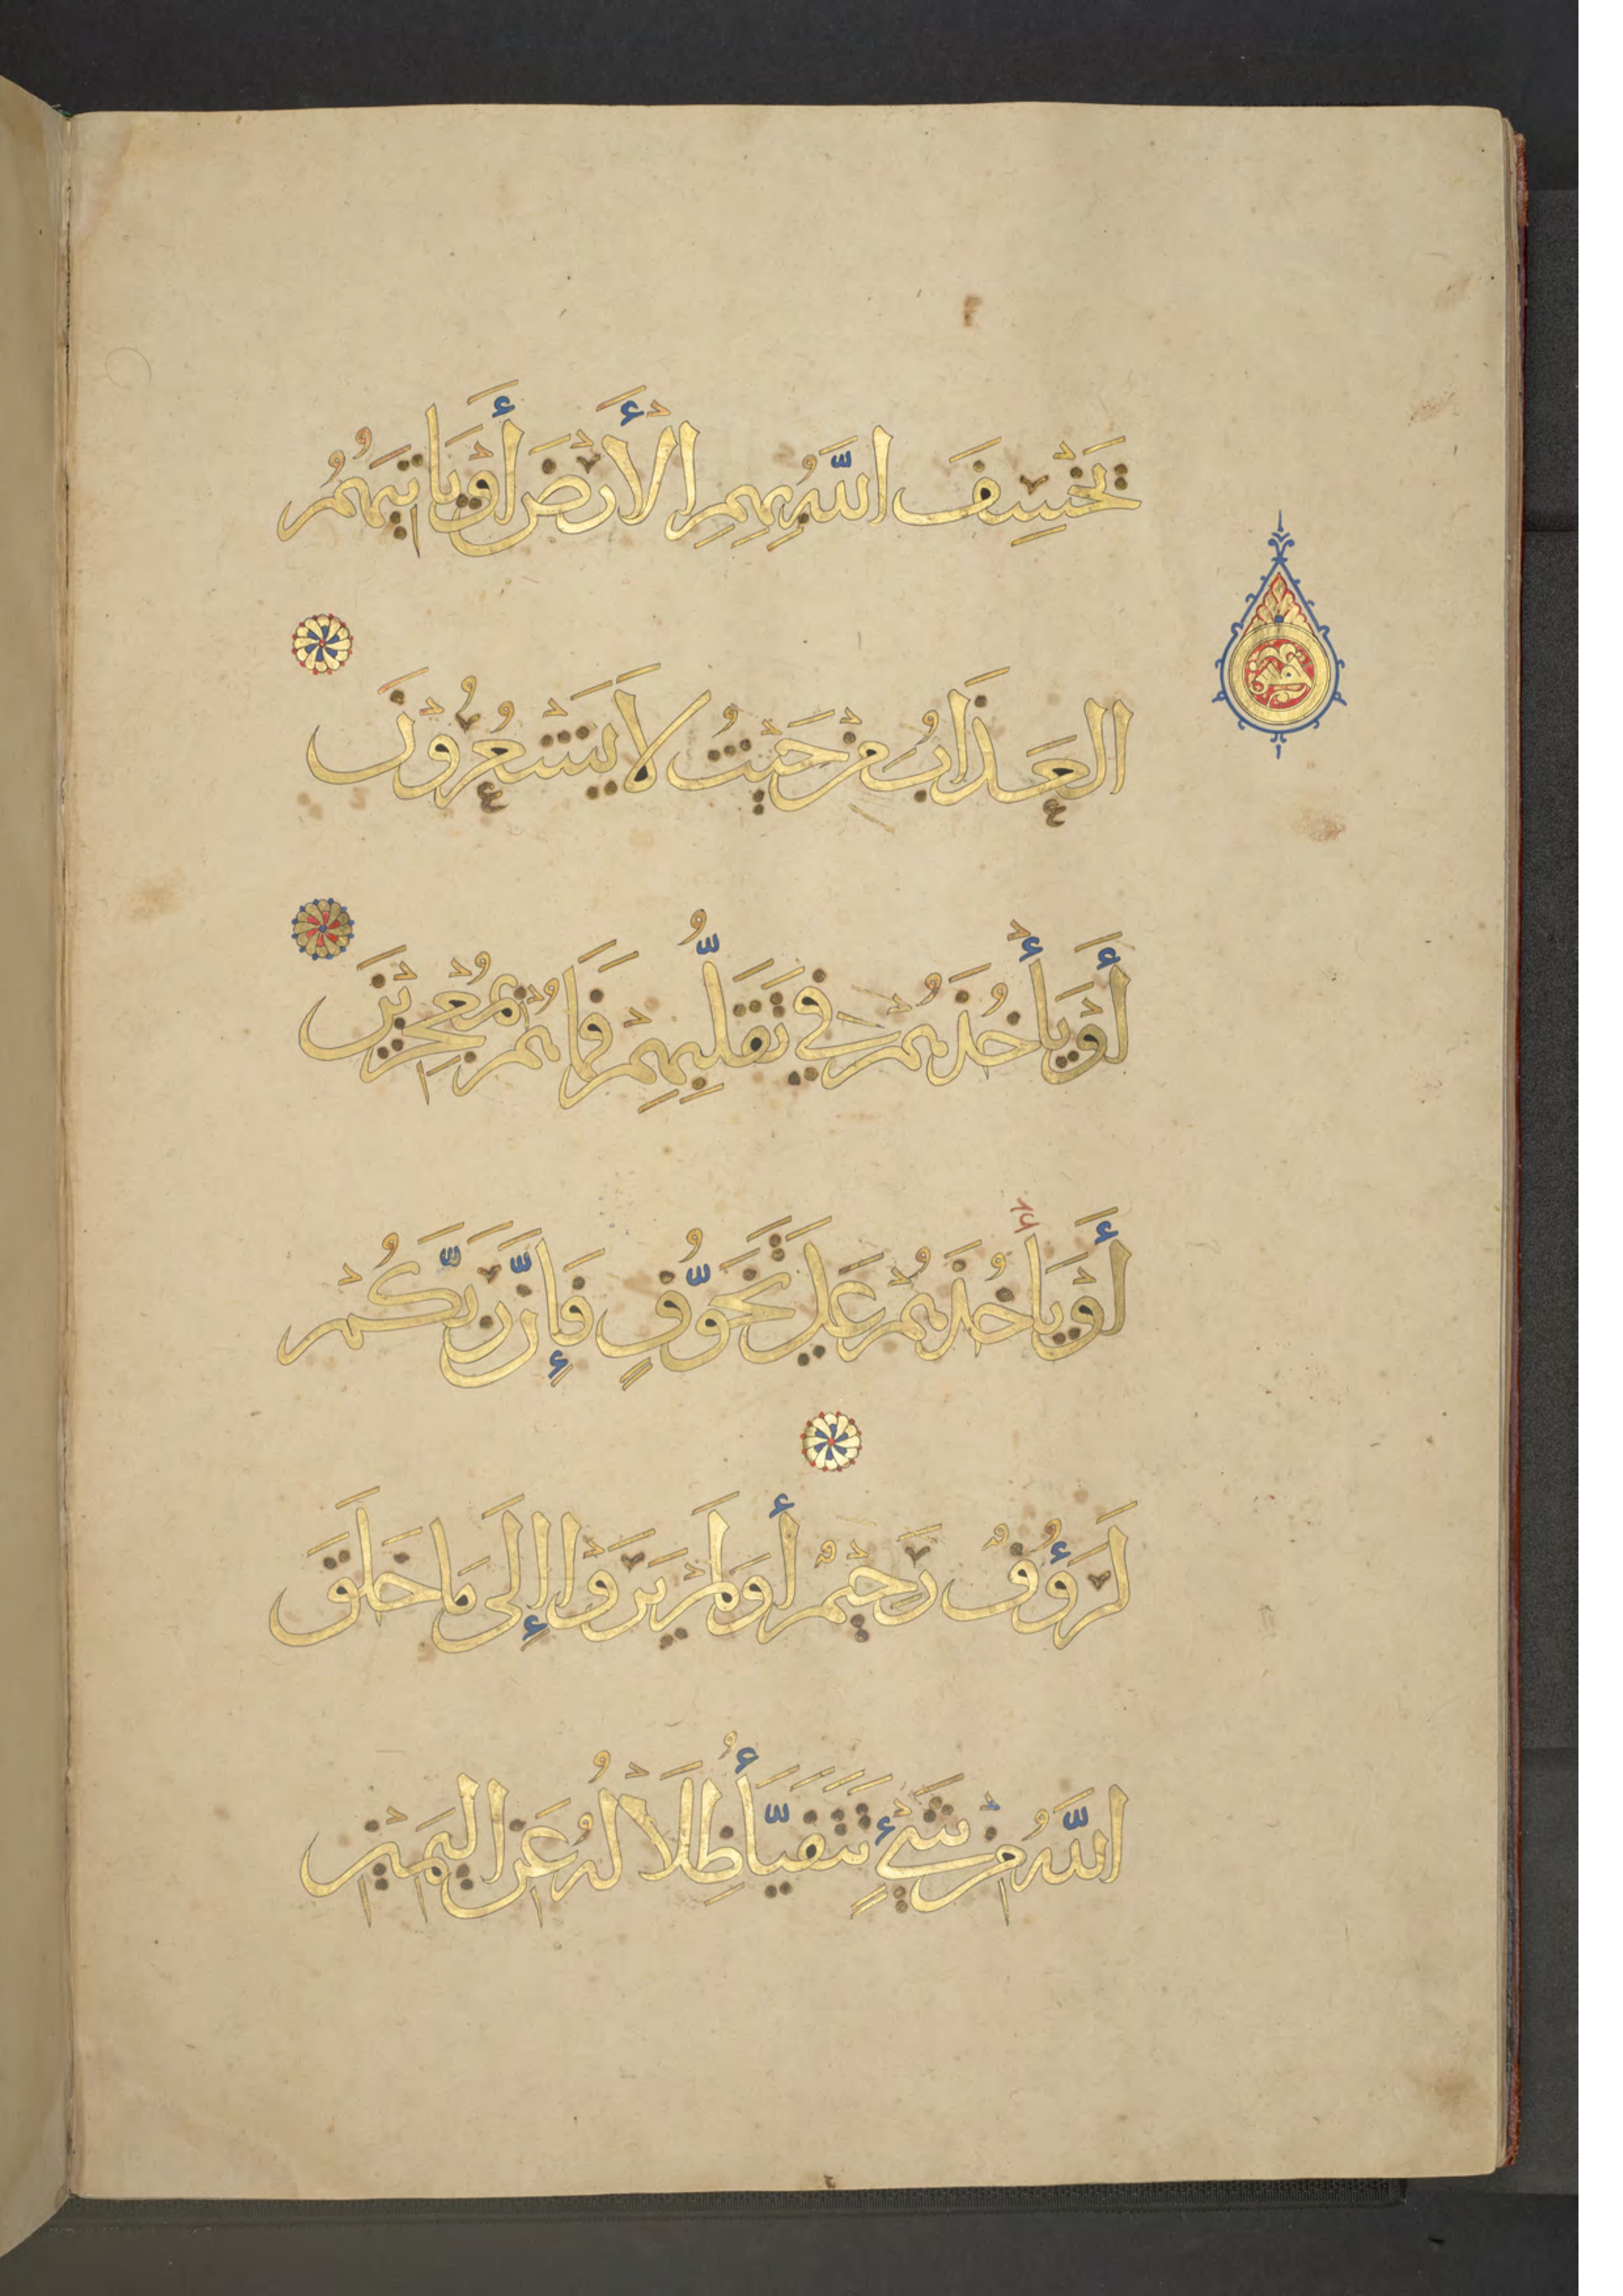 يَخْسِفَ اللَّهُ بِهِمِ الْأَرْضَ أَوْ يَأْتِيَهُمُ
الْعَذَابُ مِنْ حَيْثُ لَا يَشْعُرُوْنَ
أَوْ يَأْخُذَهُمْ فِي تَقَلُّبِهِمْ فَمَا هُمْ بِمُعْجِزِيْنَ
أَوْ يَأْخُذَهُمْ عَلَى تَخَوُّفٍ فَإِنَّ رَبَّكُمْ
لَرَؤُفٌ رَحِيْمٌ أَوَلَمْ يَرَوْا إِلَى مَا خَلَقَ
اللَّهُ مِنْ شَيْءٍ تَتَفَيَّأُ ظِلَالُهُ عَنِ الْيَمِيْنِ